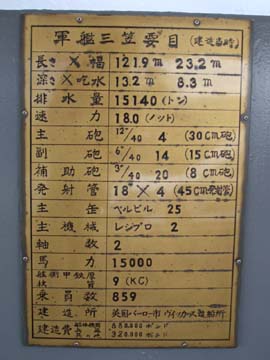 軍艦三笠要目 (建造当時)
長さ×幅 121.9m 23.2m
深さ×吃水 13.2m 8.3m
排水量 15140(トン)
速力 18.0(ノット)
主砲 12"/40 4 (30cm砲)
副砲 6"/40 14 (15cm砲)
補助砲 3"/40 20 (8cm砲)
発射管 18"×4 (45cm発射管)
主缶 ベルビル 25
主機械 レシプロ 2
軸数 2
馬力 15000
舷側甲鉄厚 9 (KC)
乗員数 859
建造所 英国バーロー市ヴィッカース造船所
建造費 880.000ポンド
320.000ポンド